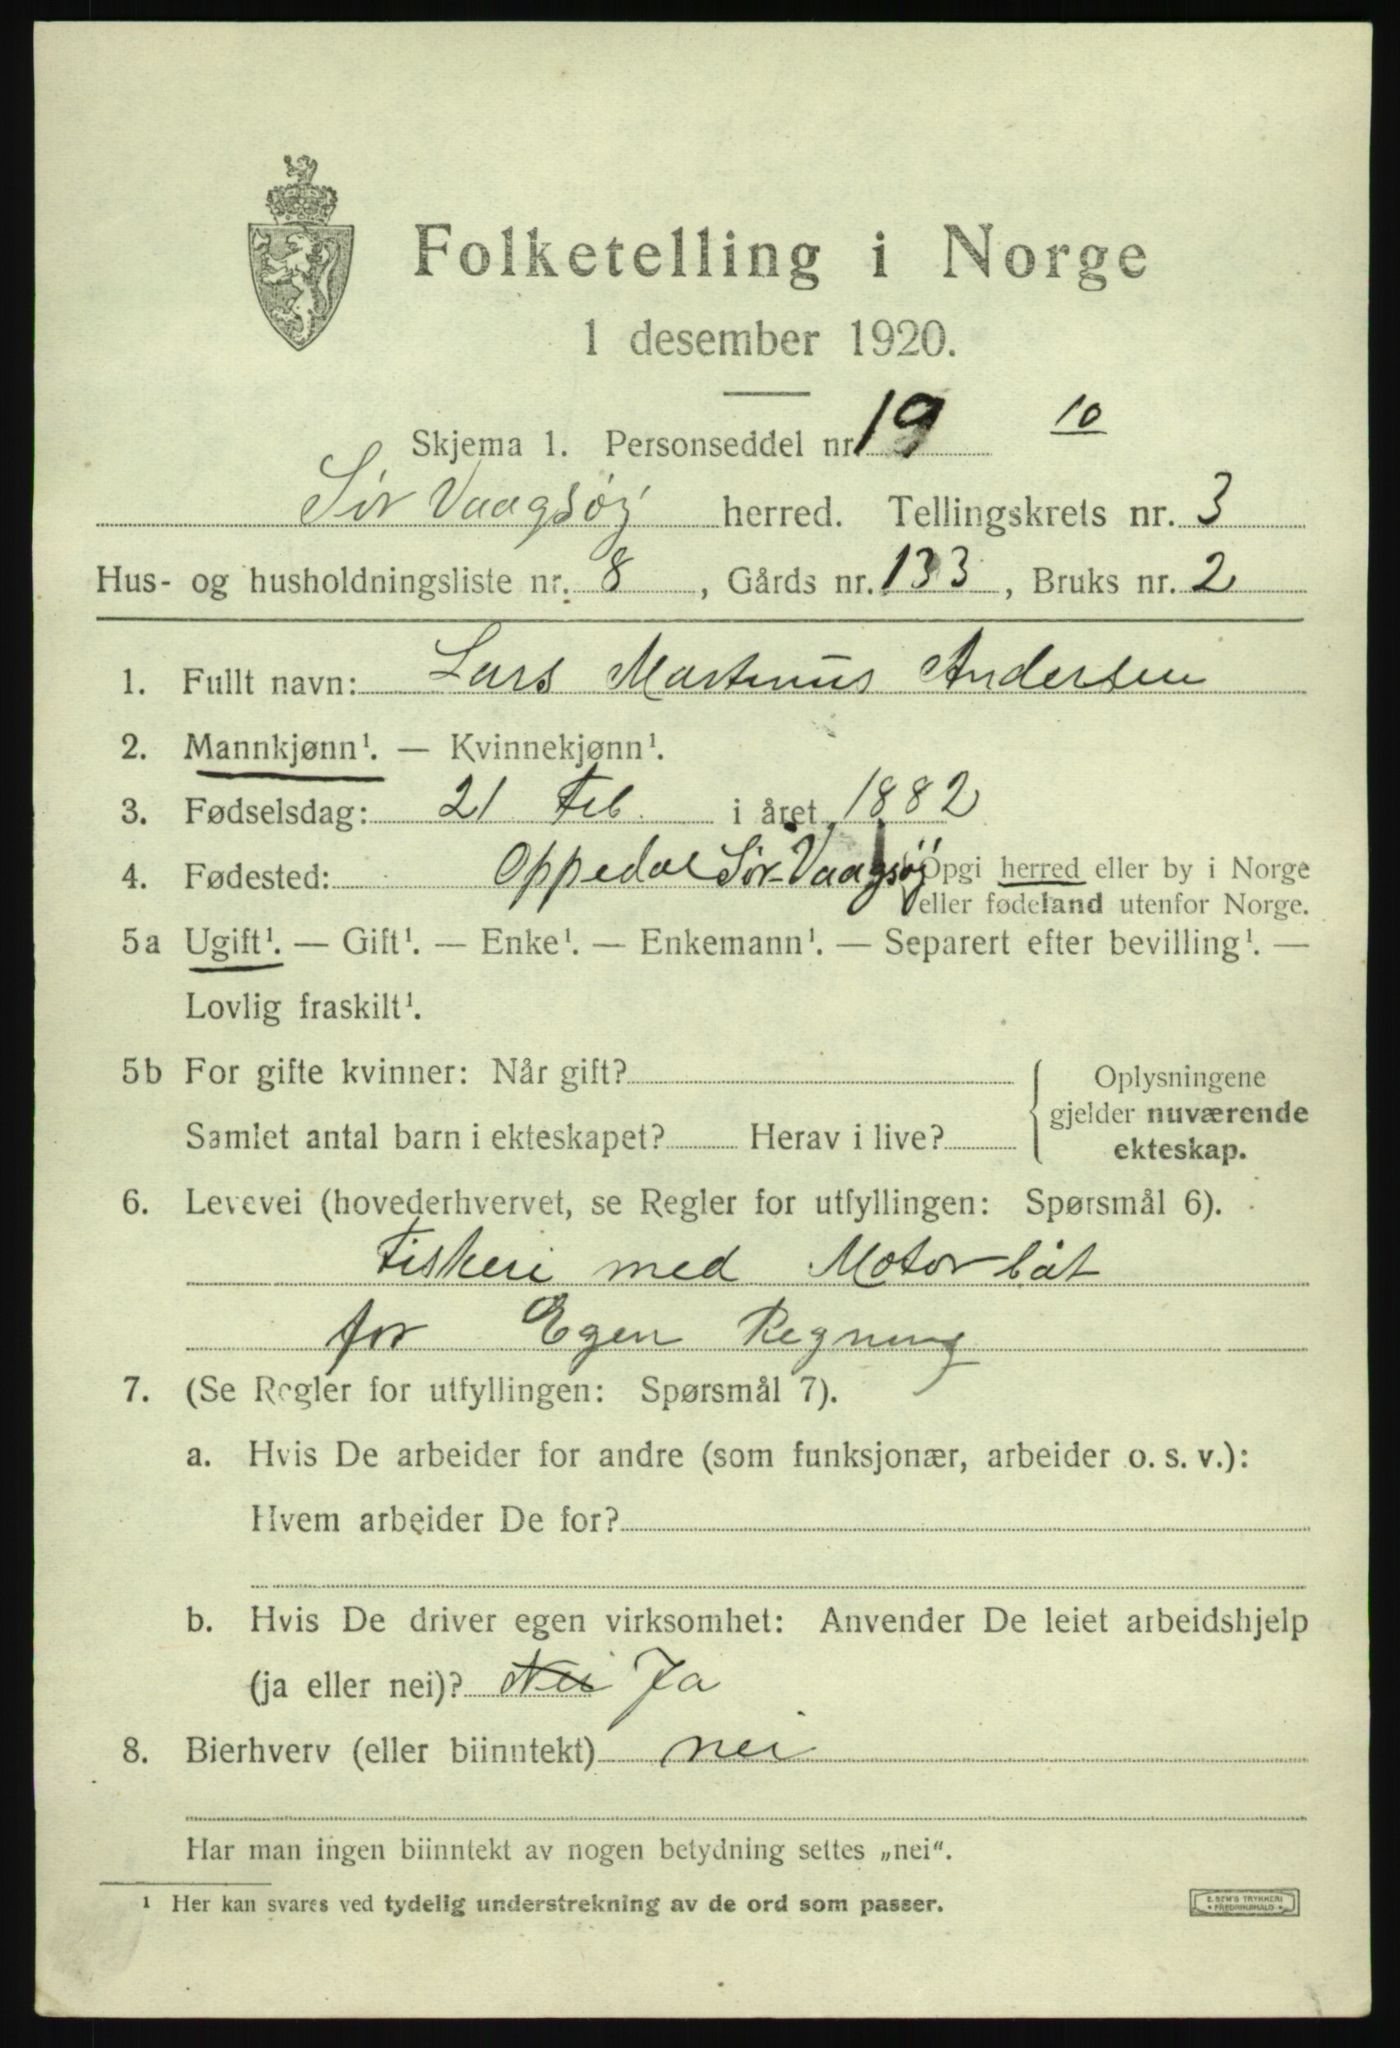 Folketelling i Norge
1 desember 1920.
Skjema 1. Personseddel nr. 19 10
Sør Vaagsøy herred. Tellingskrets nr. 3
Hus- og husholdningsliste nr. 8, Gårds nr. 133, Bruks nr. 2
1. Fullt navn: Lars Martinus Andersen
2. Mannkjønn¹. — Kvinnekjønn¹.
3. Fødselsdag: 21 Feb. i året 1882
4. Fødested: Oppedal Sør-Vaagsøy Opgi herred eller by i Norge
eller fødeland utenfor Norge.
5a Ugift¹. — Gift¹. — Enke¹. — Enkemann¹. — Separert efter bevilling¹. —
Lovlig fraskilt¹.
5b For gifte kvinner: Når gift?
Samlet antal barn i ekteskapet? Herav i live?
Oplysningene
gjelder nuværende
ekteskap.
6. Levevei (hovederhvervet, se Regler for utfyllingen: Spørsmål 6).
Fiskeri med Motorbåt
for Egen Regning
7. (Se Regler for utfyllingen: Spørsmål 7).
a. Hvis De arbeider for andre (som funksjonær, arbeider o. s. v.):
Hvem arbeider De for?
b. Hvis De driver egen virksomhet: Anvender De leiet arbeidshjelp
(ja eller nei)? Nei Ja
8. Bierhverv (eller biinntekt) nei
Har man ingen biinntekt av nogen betydning settes „nei“.
¹ Her kan svares ved tydelig understrekning av de ord som passer.
E. SEM'S TRYKKERI
FREDRIKSHALD